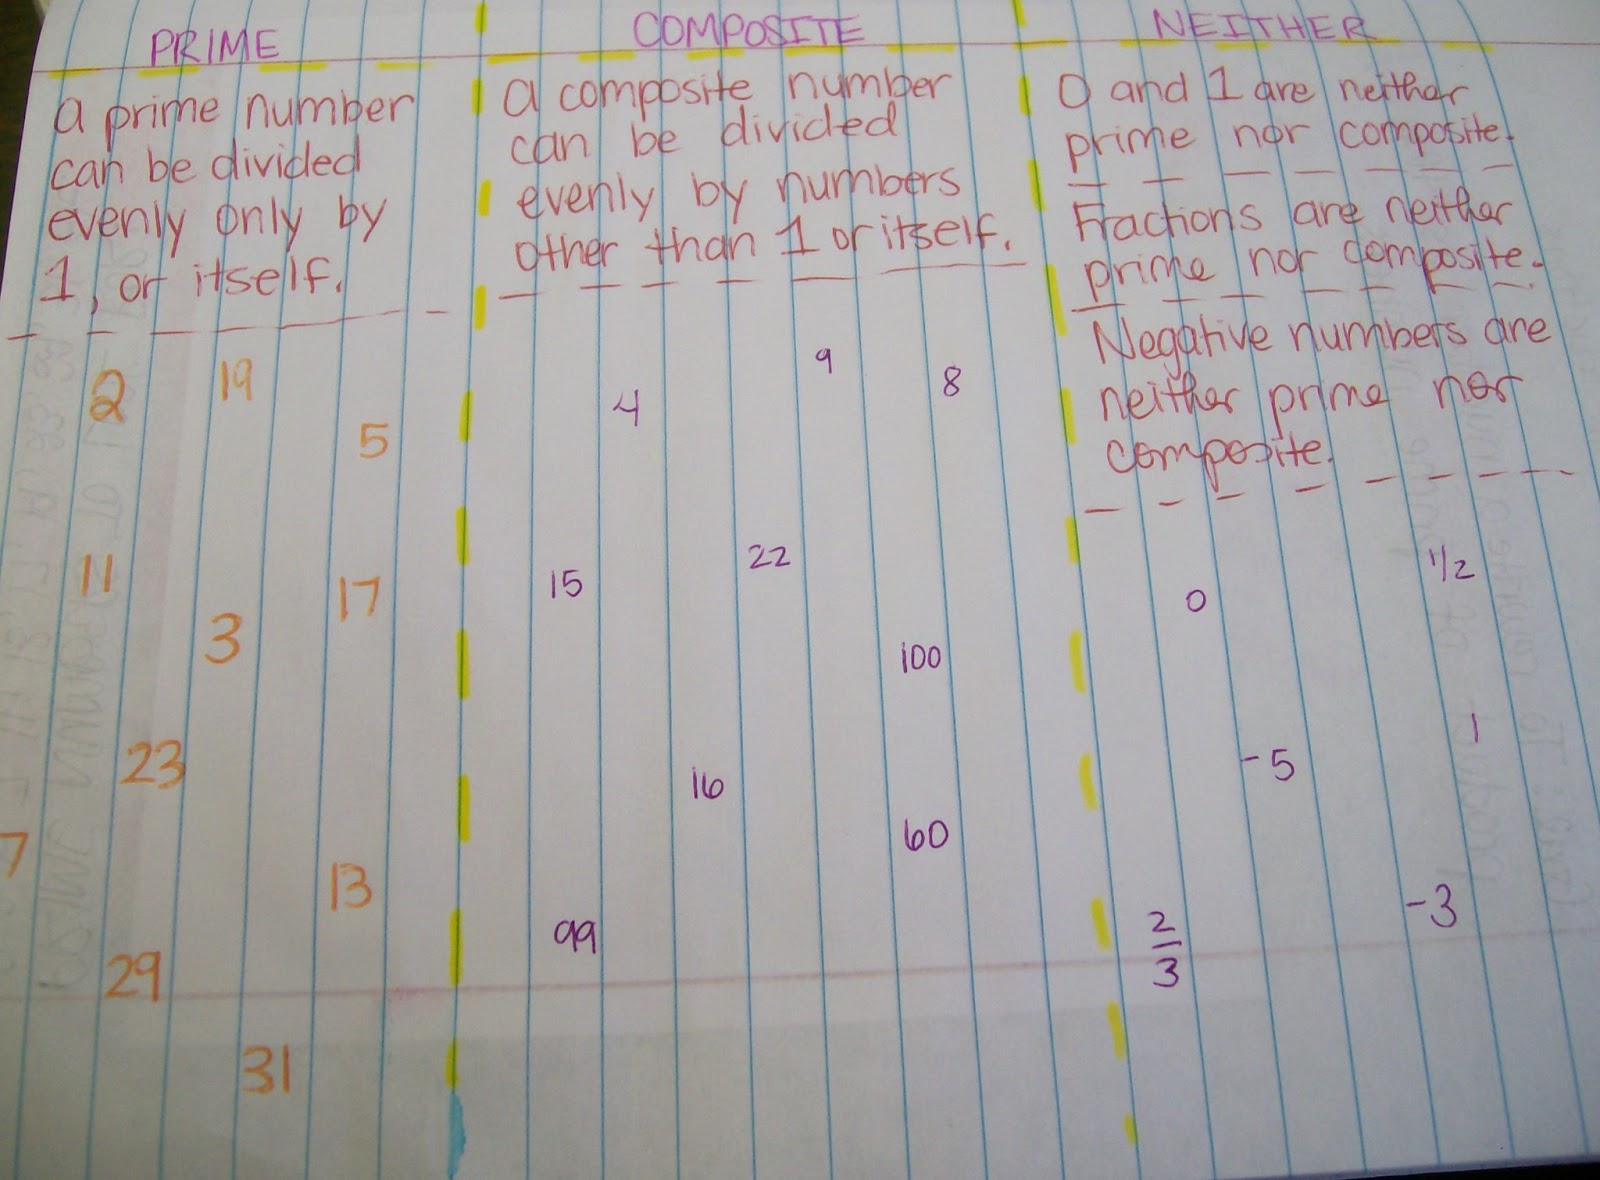 PRIME
a prime number
can be divided
evenly only by
1, or itself.
2
19
5
11
17
3
23
7
13
29
31
COMPOSITE
a composite number
can be divided
evenly by numbers
other than 1 or itself.
9
8
4
22
15
100
16
60
99
NEITHER
0 and 1 are neither
prime nor composite.
Fractions are neither
prime nor composite.
Negative numbers are
neither prime nor
composite.
1/2
0
1
-5
-3
2
3